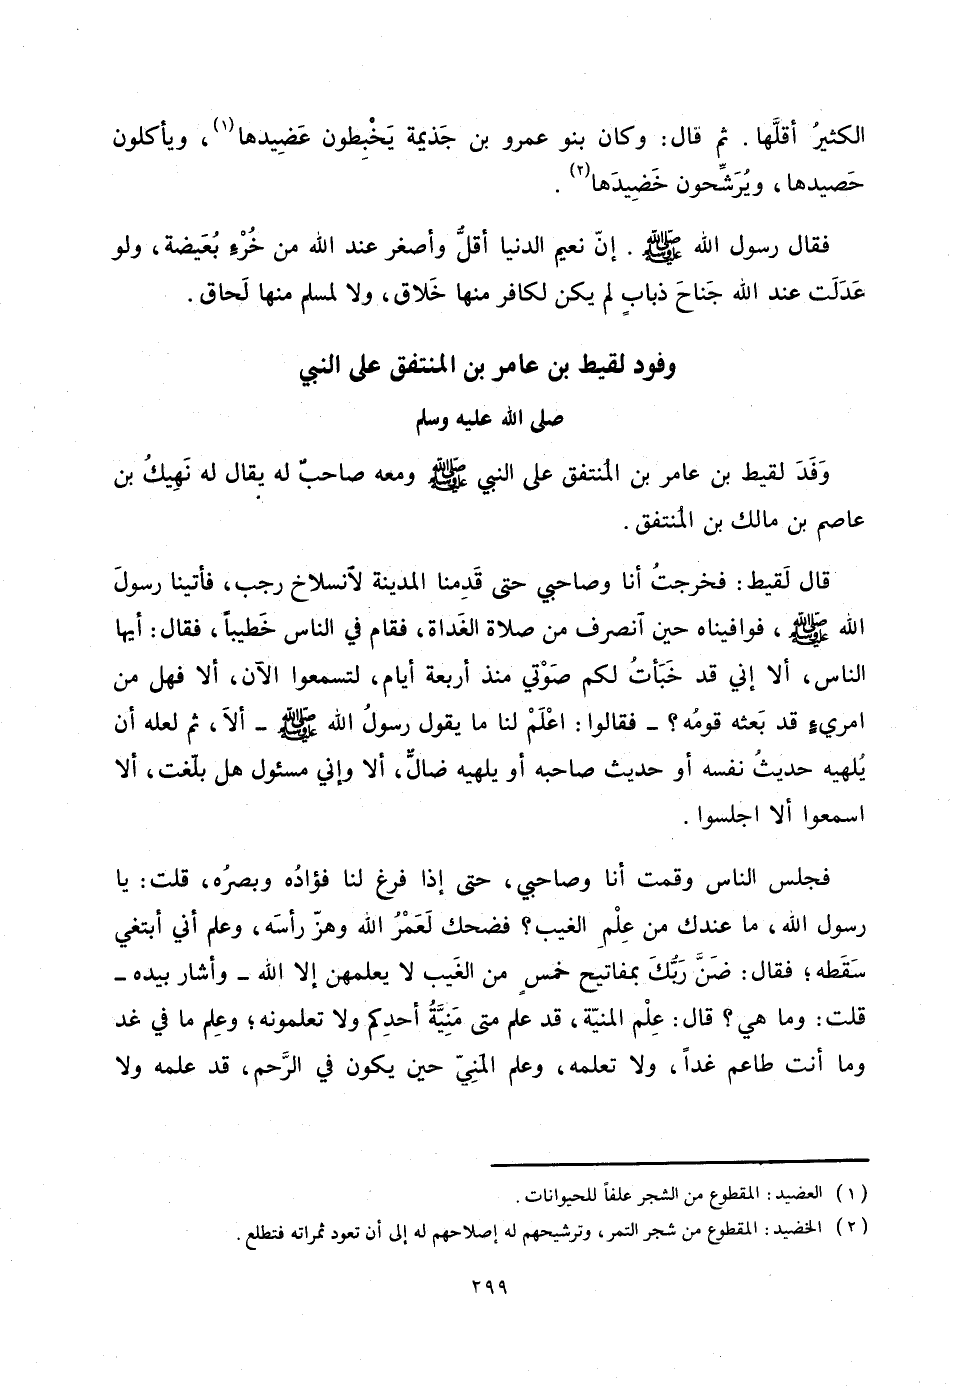 الكثيرُ أقلَّها . ثم قال : وكان بنو عمرو بن جَذيمة يَخْبِطون عَضِيدها(١) ، ويأكلون
حَصيدها ، ويُرَشِّحون خَضِيدَها(٢) .
فقال رسول الله ﷺ . إنّ نعيم الدنيا أقلُّ وأصغر عند الله من خُرْءِ بُعَيضة ، ولو
عَدَلَت عند الله جَناحَ ذبابٍ لم يكن لكافر منها خَلاق ، ولا لمسلم منها لَحاق .
وفود لقيط بن عامر بن المنتفق على النبي
صلى الله عليه وسلم
وَفَدَ لقيط بن عامر بن المُنتفق على النبي ﷺ ومعه صاحبٌ له يقال له نَهِيكُ بن
عاصم بن مالك بن المُنتفق .
قال لَقيط : فخرجتُ أنا وصاحبي حتى قَدِمنا المدينة لآنسلاخ رجب ، فأتينا رسولَ
الله ﷺ ، فوافيناه حين آنصرف من صلاة الغَداة ، فقام في الناس خَطيباً ، فقال : أيها
الناس ، ألا إني قد خَبَأتُ لكم صَوْتي منذ أربعة أيام ، لتسمعوا الآن ، ألا فهل من
امريءٍ قد بَعثه قومُه ؟ ـ فقالوا : اعْلَمْ لنا ما يقول رسولُ الله ﷺ ـ ألاَ ، ثم لعله أن
يُلهيه حديثُ نفسه أو حديث صاحبه أو يلهيه ضالٌّ ، ألا وإني مسئول هل بلّغت ، ألا
اسمعوا ألا اجلسوا .
فجلس الناس وقمت أنا وصاحبي ، حتى إذا فرغ لنا فؤادُه وبصرُه ، قلت : يا
رسول الله ، ما عندك من عِلْمِ الغيب ؟ فضحك لَعَمْرُ الله وهزّ رأسَه ، وعلم أني أبتغي
سَقَطه ؛ فقال : ضَنَّ رَبُّكَ بمفاتيح خمسٍ من الغَيب لا يعلمهن إلا الله ـ وأشار بيده ـ
قلت : وما هي ؟ قال : عِلْم المنيّة ، قد علم متى مَنِيَّةُ أحدِكم ولا تعلمونه ؛ وعلِم ما في غد
وما أنت طاعم غداً ، ولا تعلمه ، وعلم المَنِيّ حين يكون في الرَّحم ، قد علمه ولا
(١) العضيد : المقطوع من الشجر علفاً للحيوانات .
(٢) الخضيد : المقطوع من شجر التمر ، وترشيحهم له إصلاحهم له إلى أن تعود ثمراته فتطلع .
٢٩٩